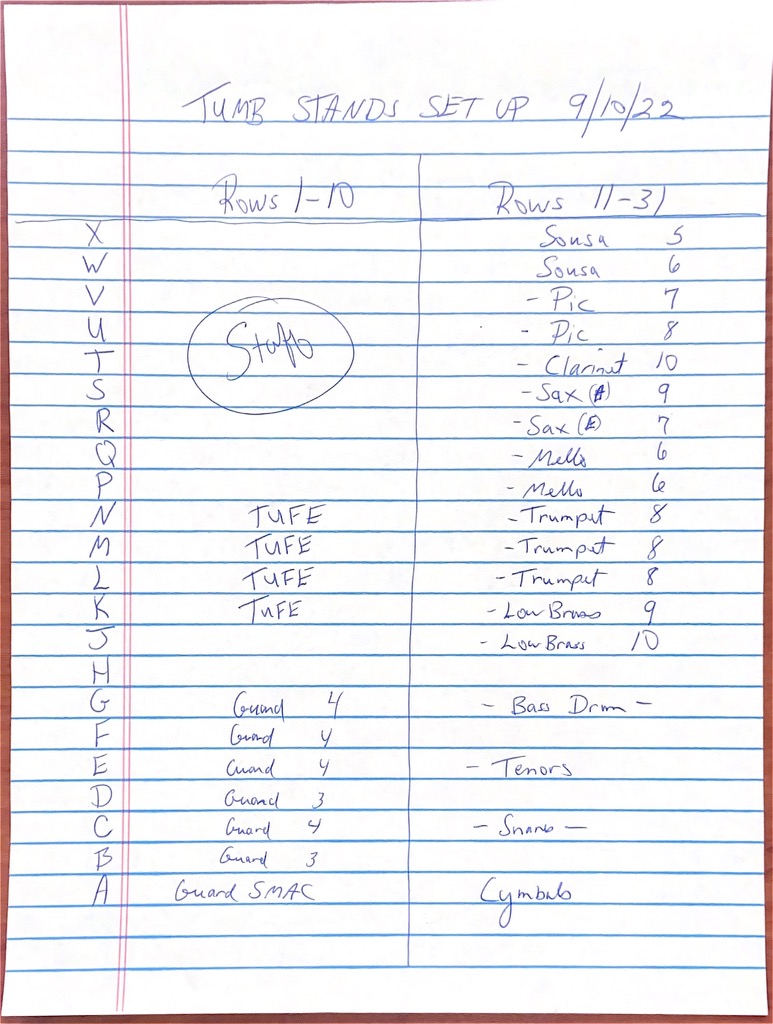 TUMB STANDS SET UP 9/10/22
Rows 1-10 Rows 11-31
X Sousa 5
W Sousa 6
V - Pic 7
U - Pic 8
Staff
T - Clarinet 10
S - Sax (A) 9
R - Sax (E) 7
Q - Mello 6
P - Mello 6
N TUFE - Trumpet 8
M TUFE - Trumpet 8
L TUFE - Trumpet 8
K TUFE - Low Brass 9
J - Low Brass 10
H
G Guard 4 - Bass Drum -
F Guard 4
E Guard 4 - Tenors
D Guard 3
C Guard 4 - Snares -
B Guard 3
A Guard SMAC Cymbals